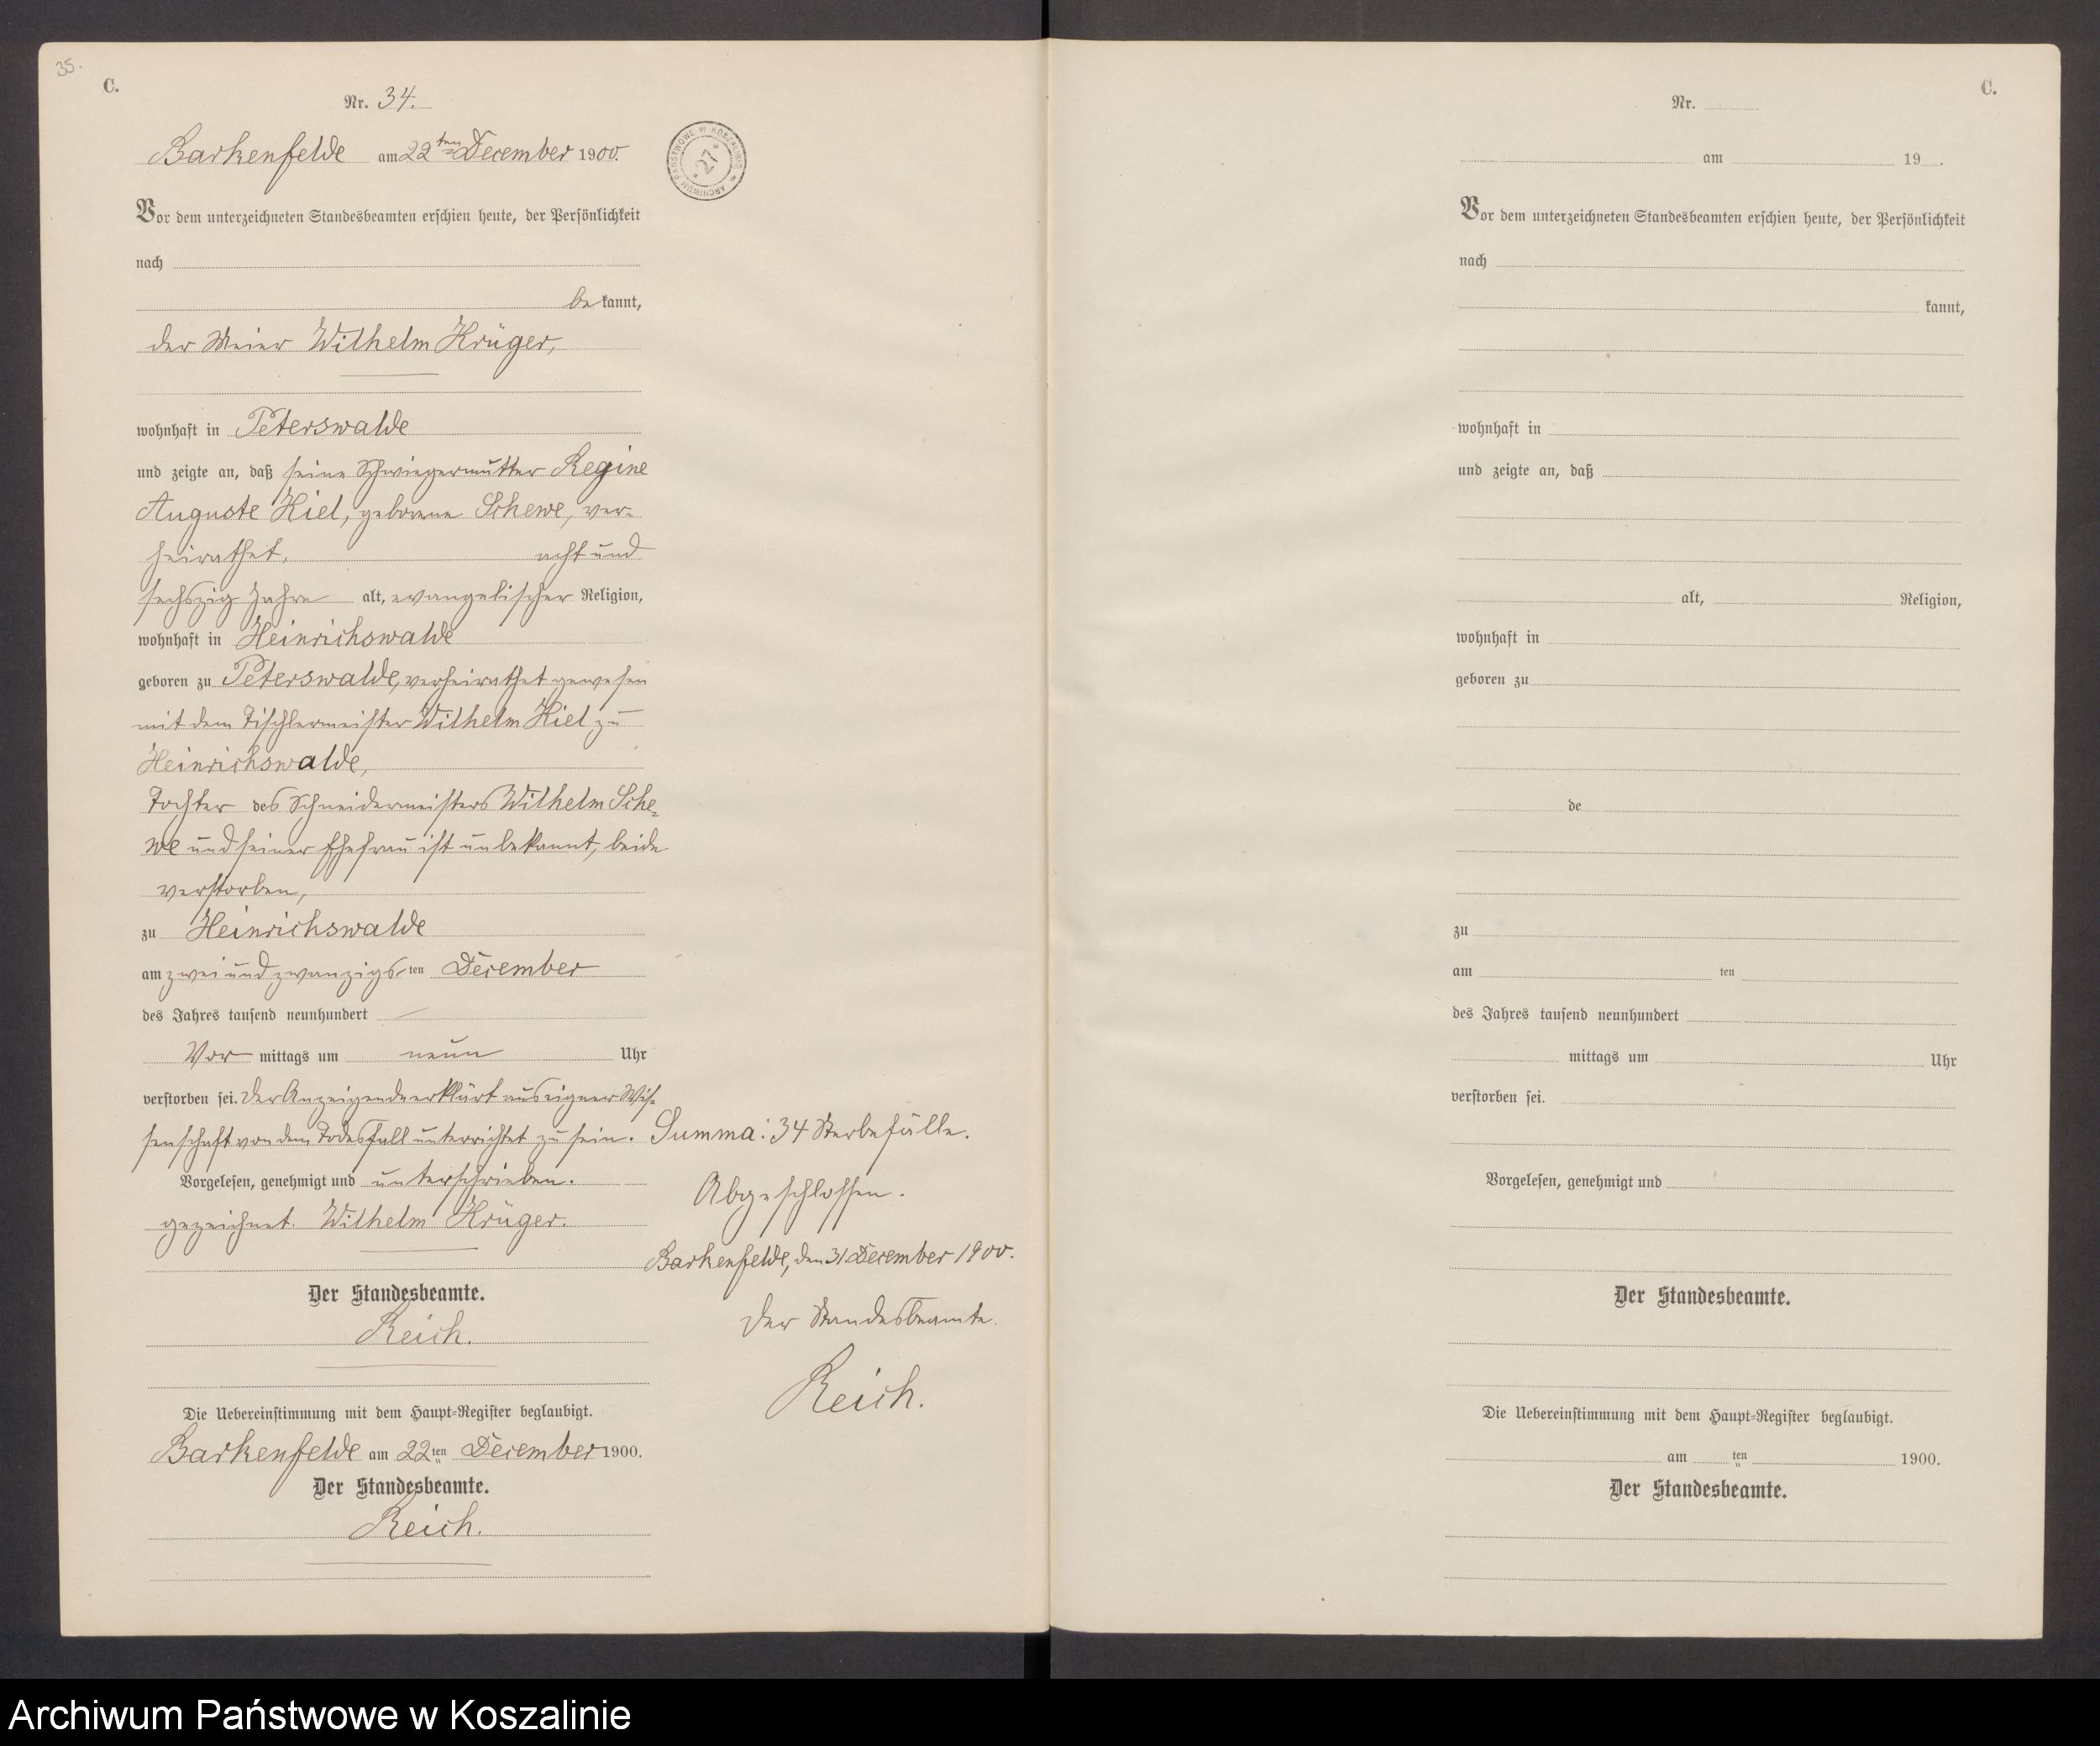 35.
C.
Nr. 34.
Barkenfelde am 22ten December 1900.
Vor dem unterzeichneten Standesbeamten erschien heute, der Persönlichkeit
nach
be kannt,
der Meier Wilhelm Krüger,
wohnhaft in Peterswalde
und zeigte an, daß seine Schwiegermutter Regine
Auguste Kiel, geborene Schewe, ver-
heirathet, acht und
sechszig Jahre alt, evangelischer Religion,
wohnhaft in Heinrichswalde
geboren zu Peterswalde, verheirathet gewesen
mit dem Tischlermeister Wilhelm Kiel zu
Heinrichswalde,
Tochter des Schneidermeisters Wilhelm Sche-
we und seiner Ehefrau ist unbekannt, beide
verstorben,
zu Heinrichswalde
am zwei und zwanzigs ten December
des Jahres tausend neunhundert
Vor mittags um neun Uhr
verstorben sei. Der Anzeigende erklärt aus eigner Wis-
senschaft von dem Todesfall unterrichtet zu sein.
Vorgelesen, genehmigt und unterschrieben.
gezeichnet. Wilhelm Krüger.
Der Standesbeamte.
Reich.
Die Uebereinstimmung mit dem Haupt-Register beglaubigt.
Barkenfelde am 22ten December 1900.
Der Standesbeamte.
Reich.
ARCHIWUM PAŃSTWOWE W KOSZALINIE
27
Summa: 34 Sterbefälle.
Abgeschlossen.
Barkenfelde, den 31 December 1900.
Der Standesbeamte.
Reich.
C.
Nr.
am 19 .
Vor dem unterzeichneten Standesbeamten erschien heute, der Persönlichkeit
nach
kannt,
wohnhaft in
und zeigte an, daß
alt, Religion,
wohnhaft in
geboren zu
de
zu
am ten
des Jahres tausend neunhundert
mittags um Uhr
verstorben sei.
Vorgelesen, genehmigt und
Der Standesbeamte.
Die Uebereinstimmung mit dem Haupt-Register beglaubigt.
am ten 1900.
Der Standesbeamte.
Archiwum Państwowe w Koszalinie